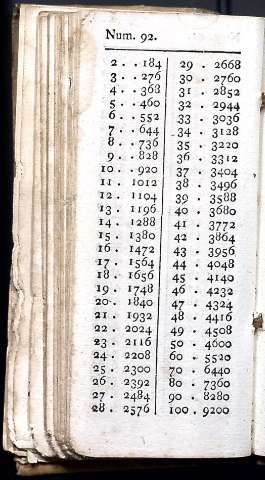 Num. 92.
2 . . 184
3 . . 276
4 . . 368
5 . . 460
6 . . 552
7 . . 644
8 . . 736
9 . . 828
10 . . 920
11 . 1012
12 . 1104
13 . 1196
14 . 1288
15 . 1380
16 . 1472
17 . 1564
18 . 1656
19 . 1748
20 . 1840
21 . 1932
22 . 2024
23 . 2116
24 . 2208
25 . 2300
26 . 2392
27 . 2484
28 . 2576
29 . 2668
30 . 2760
31 . 2852
32 . 2944
33 . 3036
34 . 3128
35 . 3220
36 . 3312
37 . 3404
38 . 3496
39 . 3588
40 . 3680
41 . 3772
42 . 3864
43 . 3956
44 . 4048
45 . 4140
46 . 4232
47 . 4324
48 . 4416
49 . 4508
50 . 4600
60 . 5520
70 . 6440
80 . 7360
90 . 8280
100 . 9200